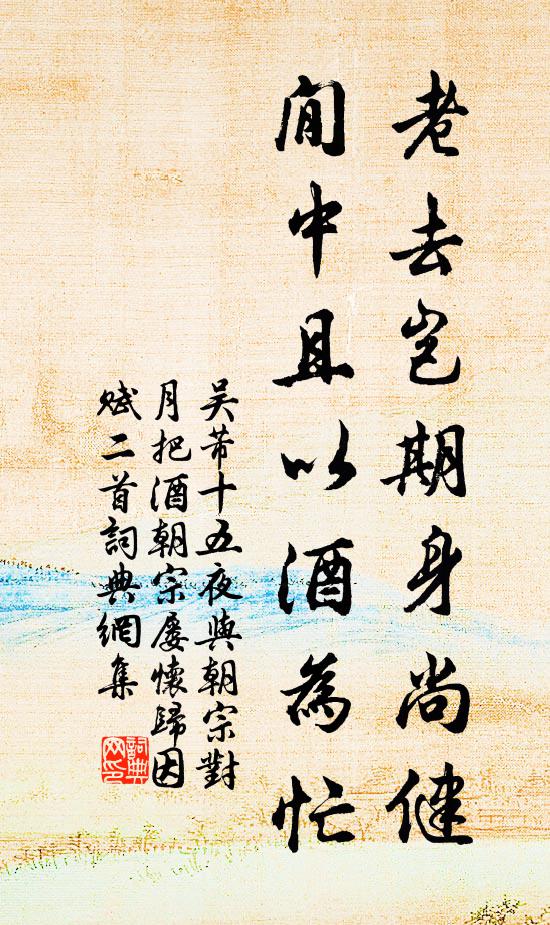 老去岂期身尚健
閒中且以酒為忙
吴芾十五夜與朝宗對
月把酒朝宗屡懷歸因
赋二首詞典網集
詞典
网印